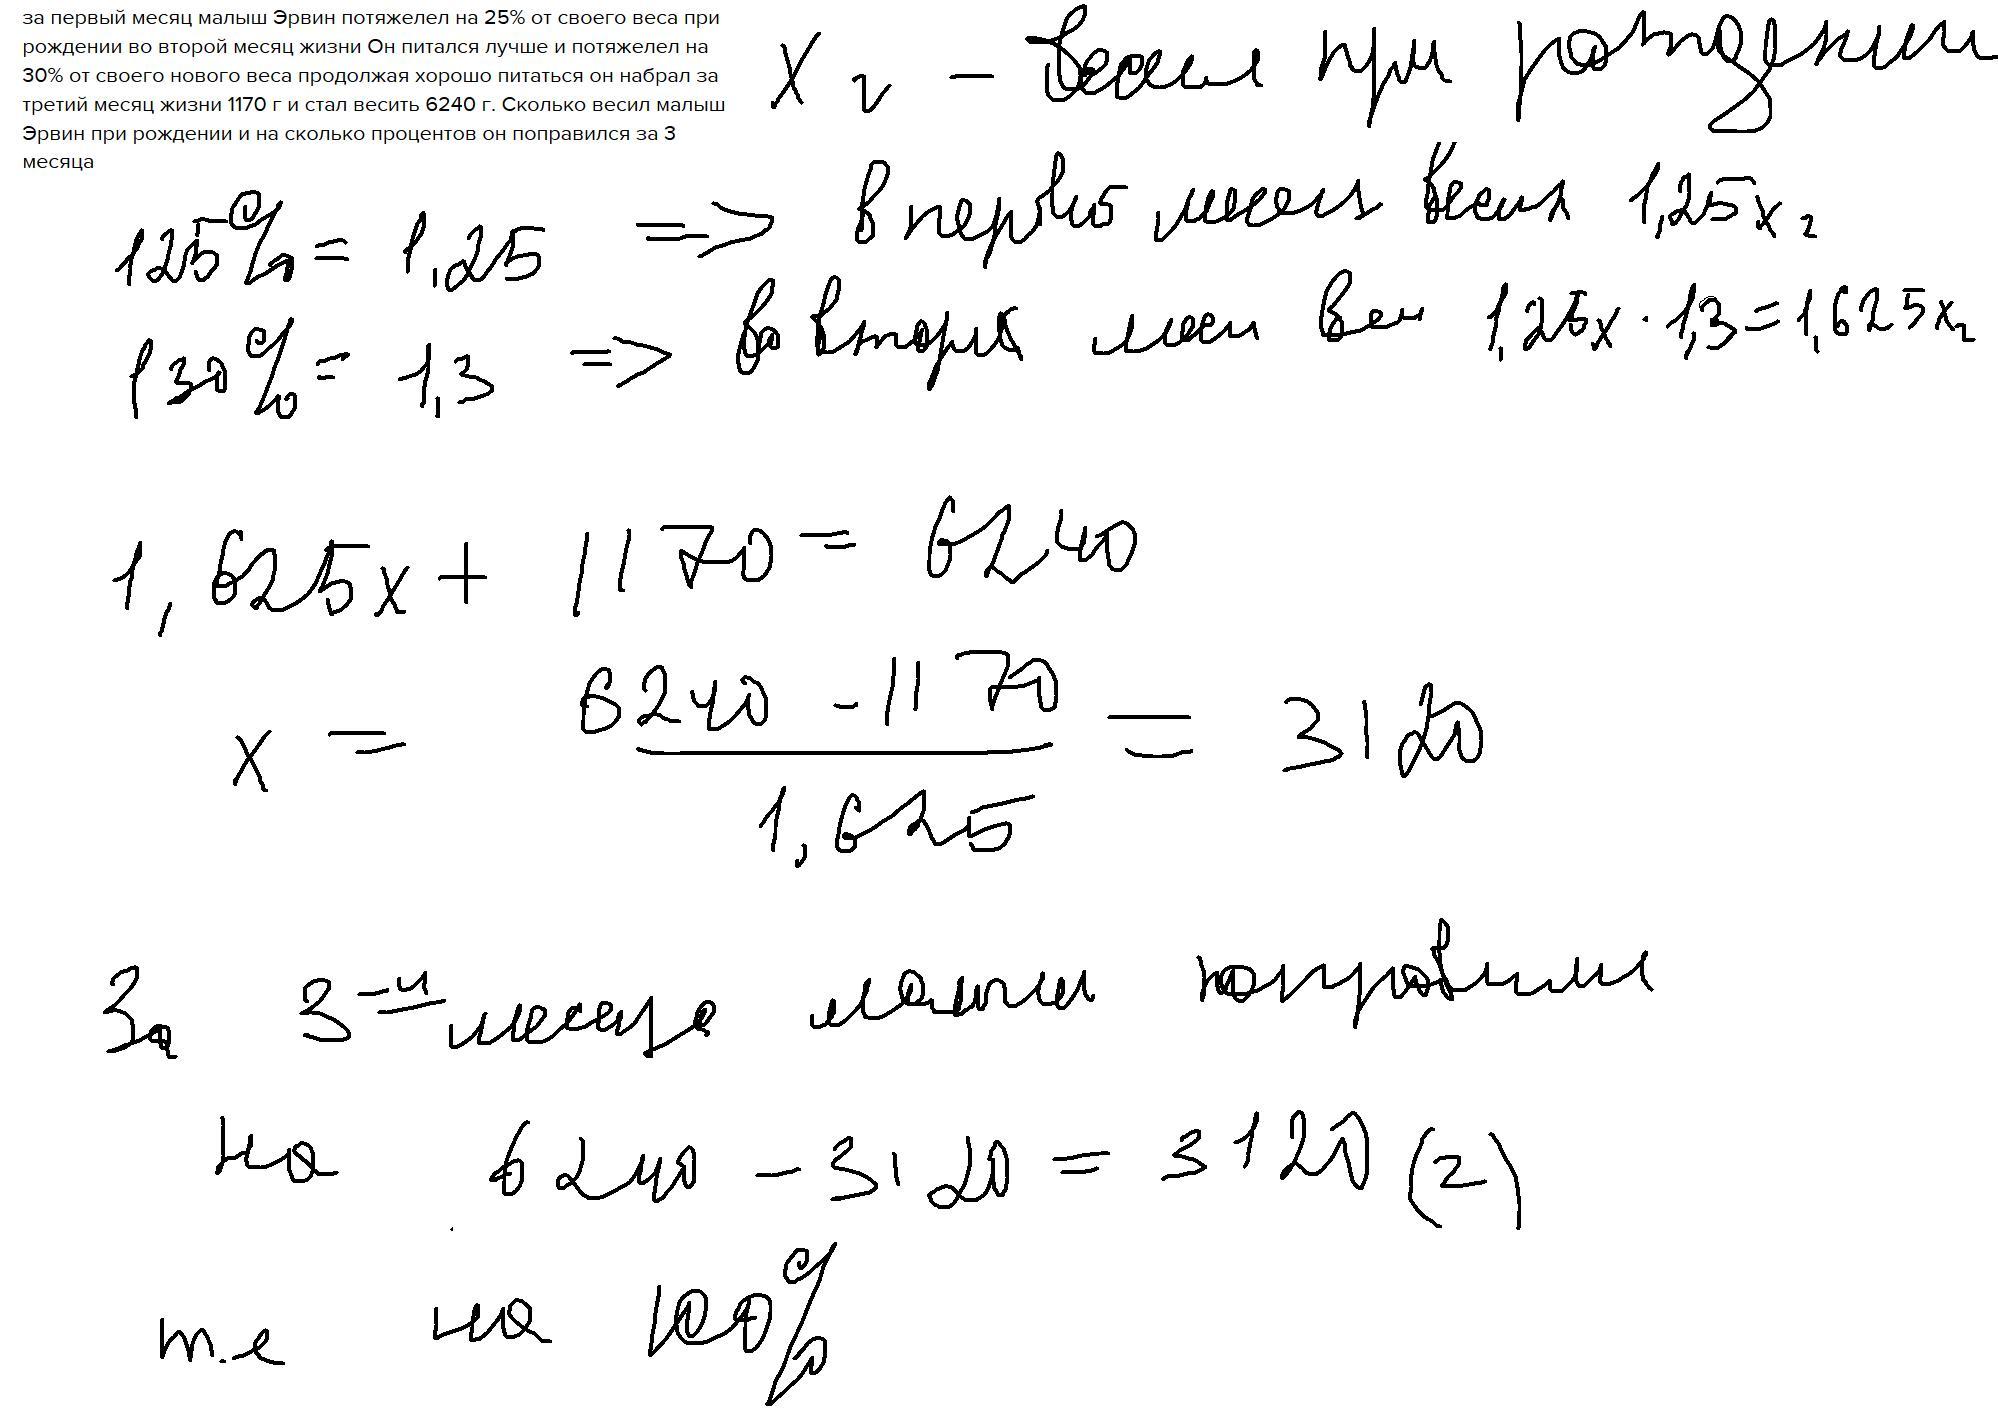 за первый месяц малыш Эрвин потяжелел на 25% от своего веса при
рождении во второй месяц жизни Он питался лучше и потяжелел на
30% от своего нового веса продолжая хорошо питаться он набрал за
третий месяц жизни 1170 г и стал весить 6240 г. Сколько весил малыш
Эрвин при рождении и на сколько процентов он поправился за 3
месяца
x г – весил при рождении
125% = 1,25 => в первый месяц весил 1,25x г
130% = 1,3 => во второй вес 1,25x · 1,3 = 1,625x г
1,625x + 1170 = 6240
x = 6240 - 1170 / 1,625 = 3120
За 3 месяца малыш поправился
на 6240 - 3120 = 3120 (г)
т.е на 100%